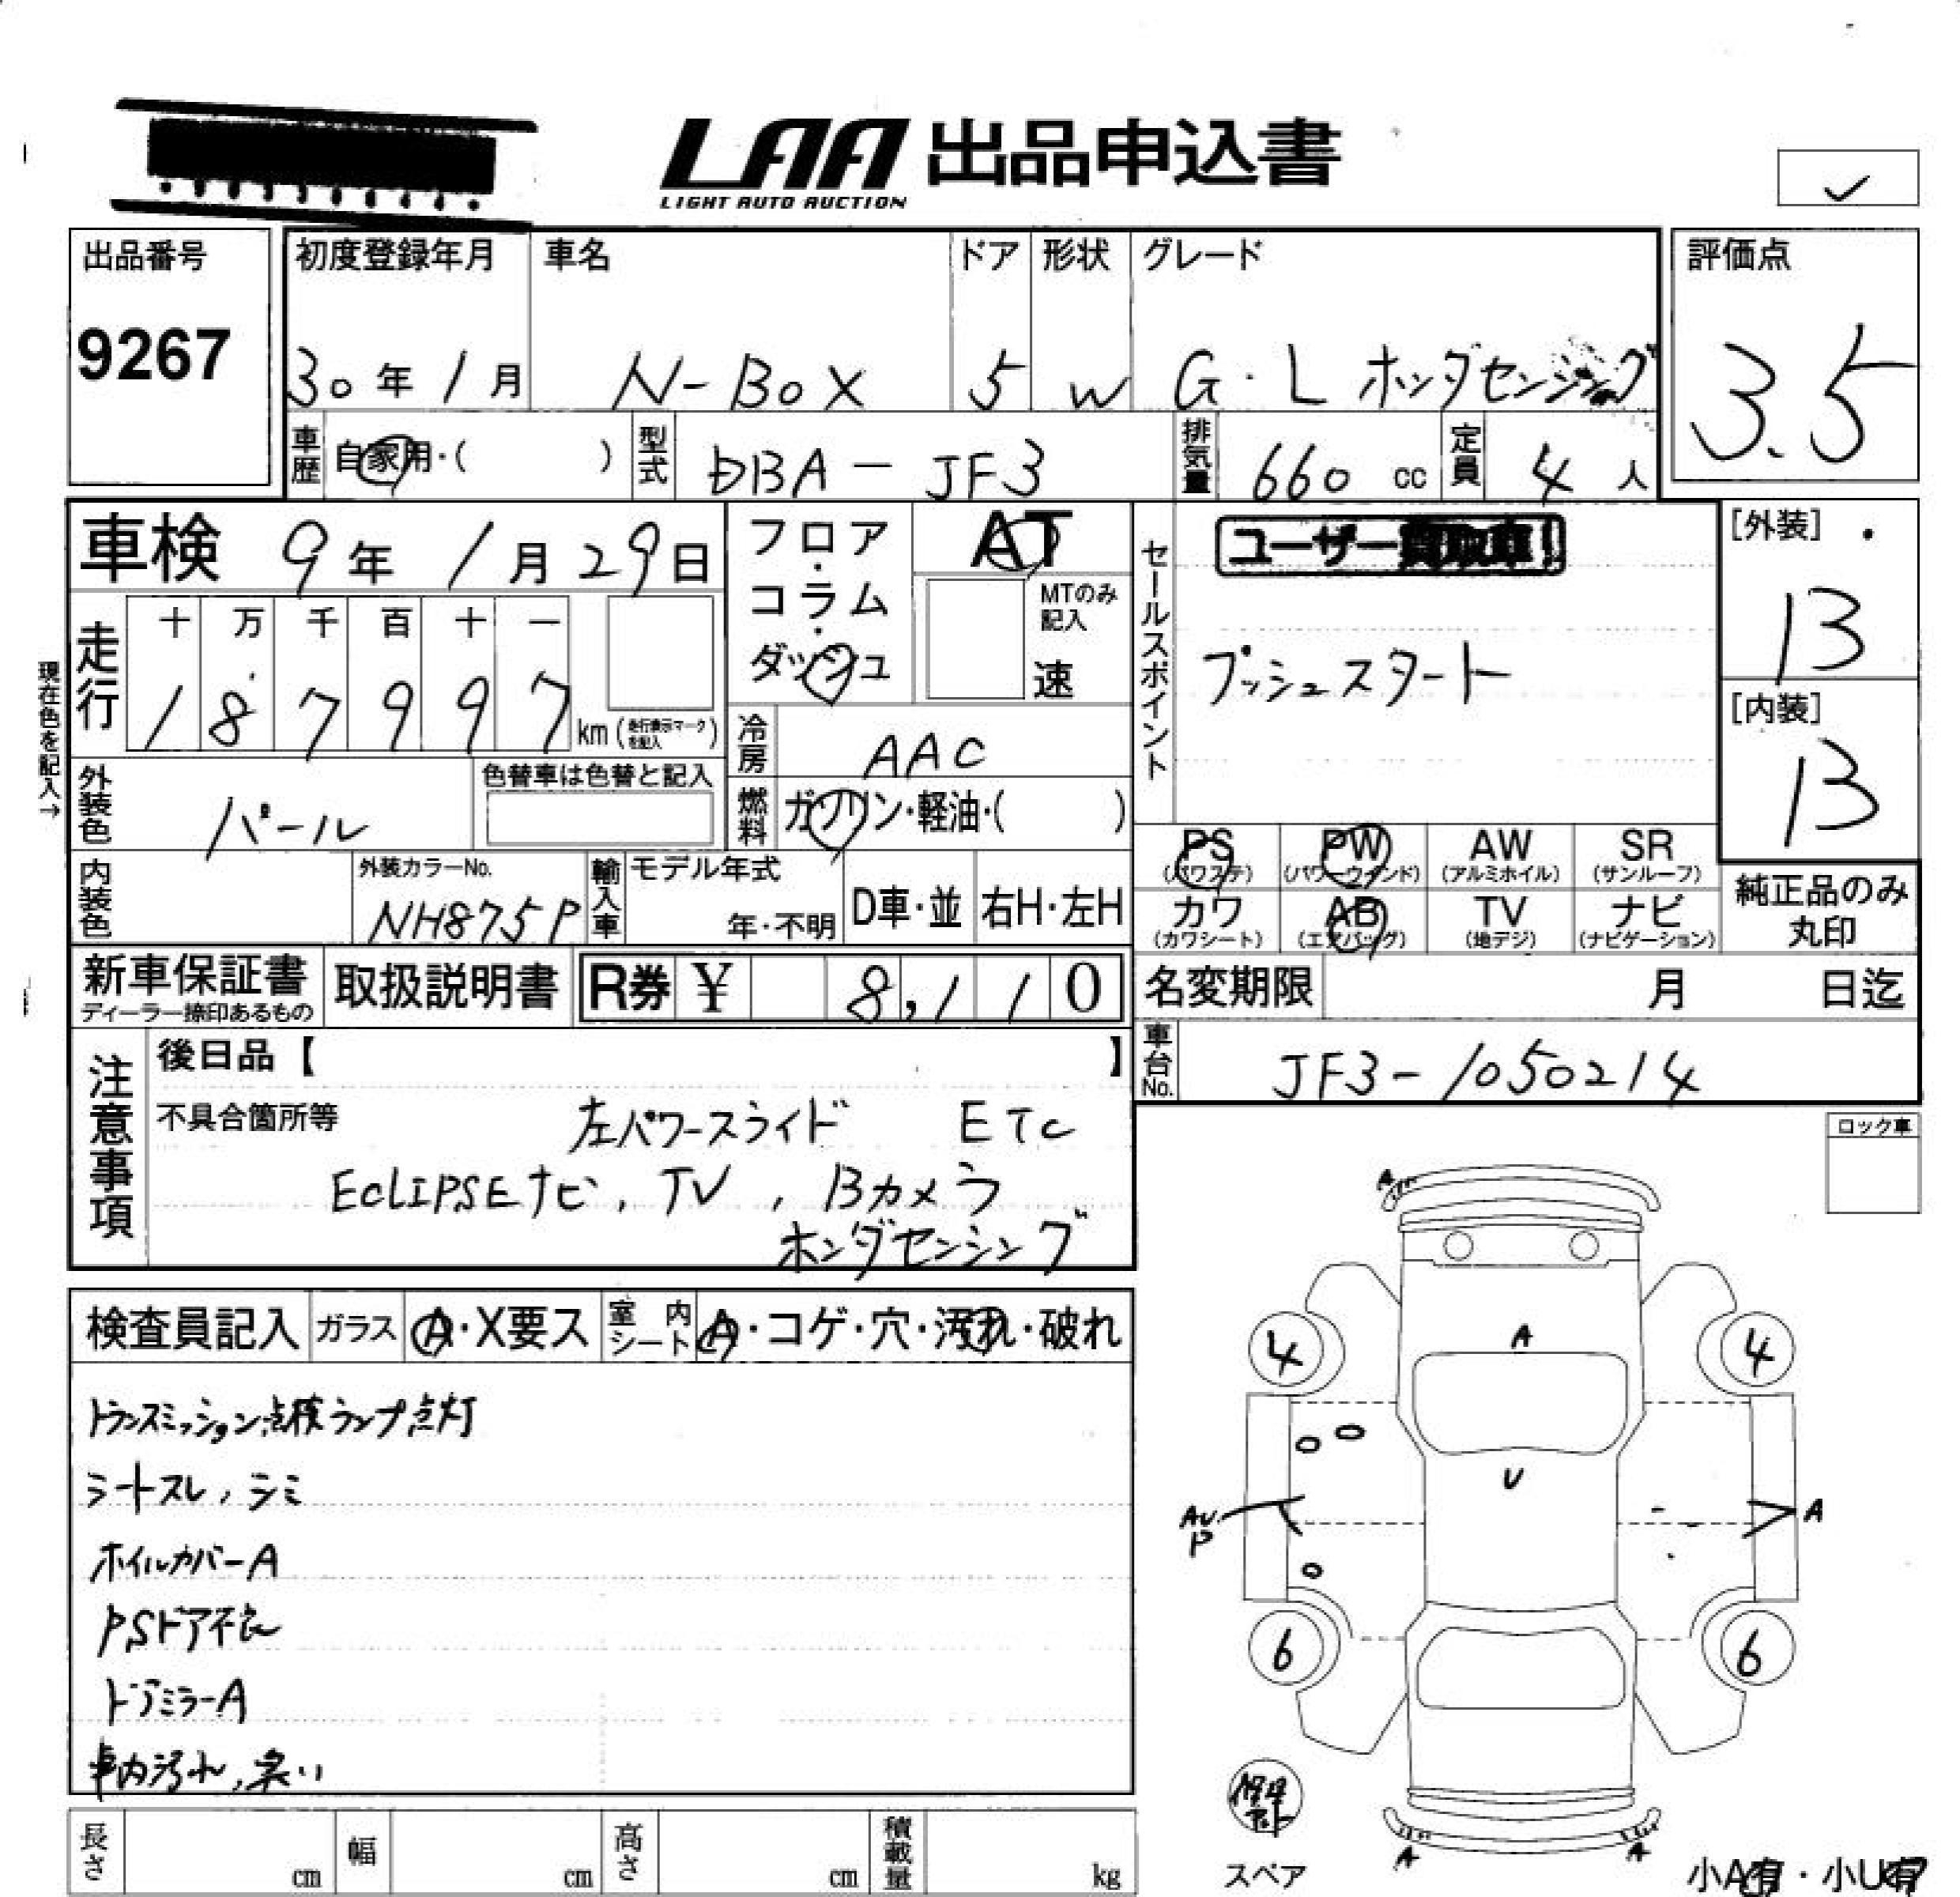 LAA 出品申込書
LIGHT AUTO AUCTION
出品番号
9267
初度登録年月 車名 ドア 形状 グレード
30年1月 N-BOX 5 W G・L ホンダセンシング
評価点
3.5
車歴 自家用・( ) 型式 DBA-JF3 排気量 660 cc 定員 4人
車検 9年1月29日
フロア・コラム・ダッシュ
AT
MTのみ記入
速
現在色を記入→
走行 十 万 千 百 十 一
1 8 7 9 9 7 km (走行表示マークを記入)
冷房 AAC
燃料 ガソリン・軽油・( )
外装色 パール
色替車は色替と記入
内装色
外装カラーNo.
NH875P
輸入車 モデル年式
年・不明 D車・並 右H・左H
セールスポイント
ユーザー買取車!
プッシュスタート
[外装]
13
[内装]
13
PS (パワステ) PW (パワーウインド) AW (アルミホイル) SR (サンルーフ)
カワ (カワシート) AB (エアバッグ) TV (地デジ) ナビ (ナビゲーション)
純正品のみ
丸印
新車保証書
ディーラー捺印あるもの
取扱説明書
R券 ¥ 8,110
名変期限 月 日迄
車台No. JF3-1050214
注意事項
後日品【 】
不具合箇所等 左パワースライド ETC
ECLIPSEナビ, TV, Bカメラ
ホンダセンシング
ロック車
検査員記入 ガラス A・X要ス 室内シート A・コゲ・穴・汚れ・破れ
トランスミッション点検ランプ点灯
シートスレ, シミ
ホイルカバーA
PSドア不良
ドアミラーA
車内汚れ, 臭い
A
A
4 4
U
AU.P
A
6 6
スペア
A A
小A有・小U有
長さ cm 幅 cm 高さ cm 積載量 kg